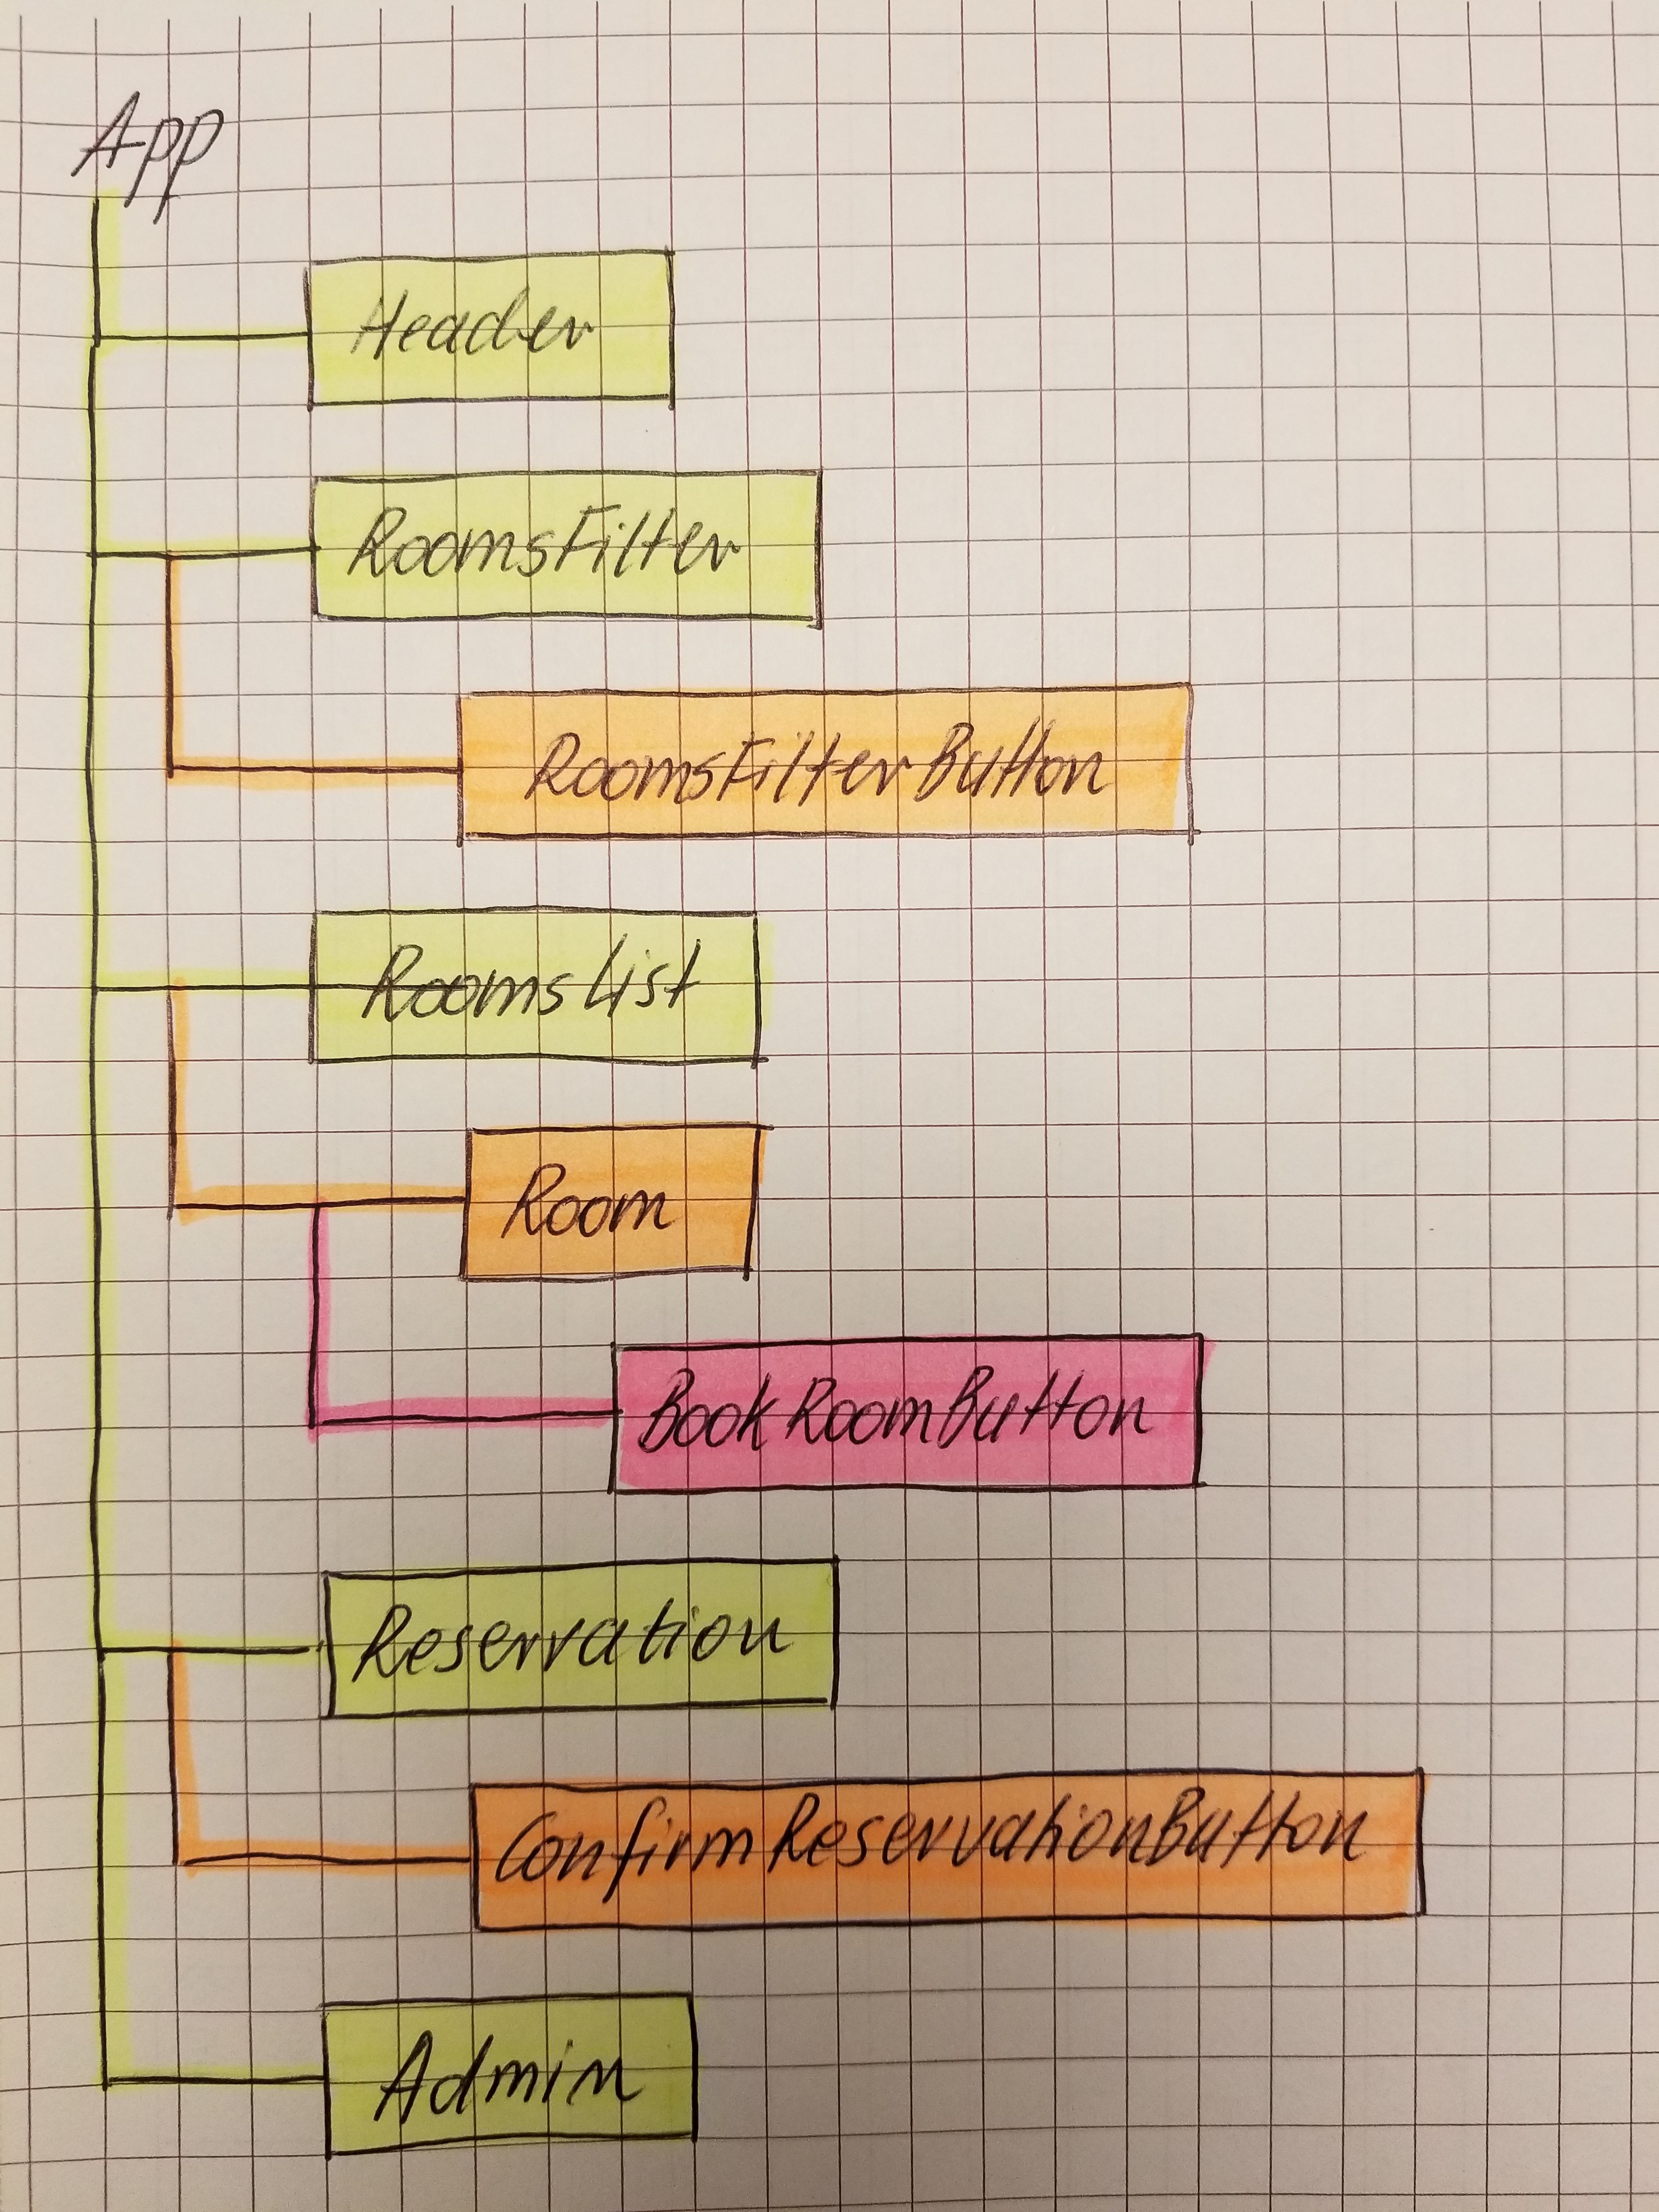 App
Header
RoomsFilter
RoomsFilterButton
RoomsList
Room
BookRoomButton
Reservation
ConfirmReservationButton
Admin